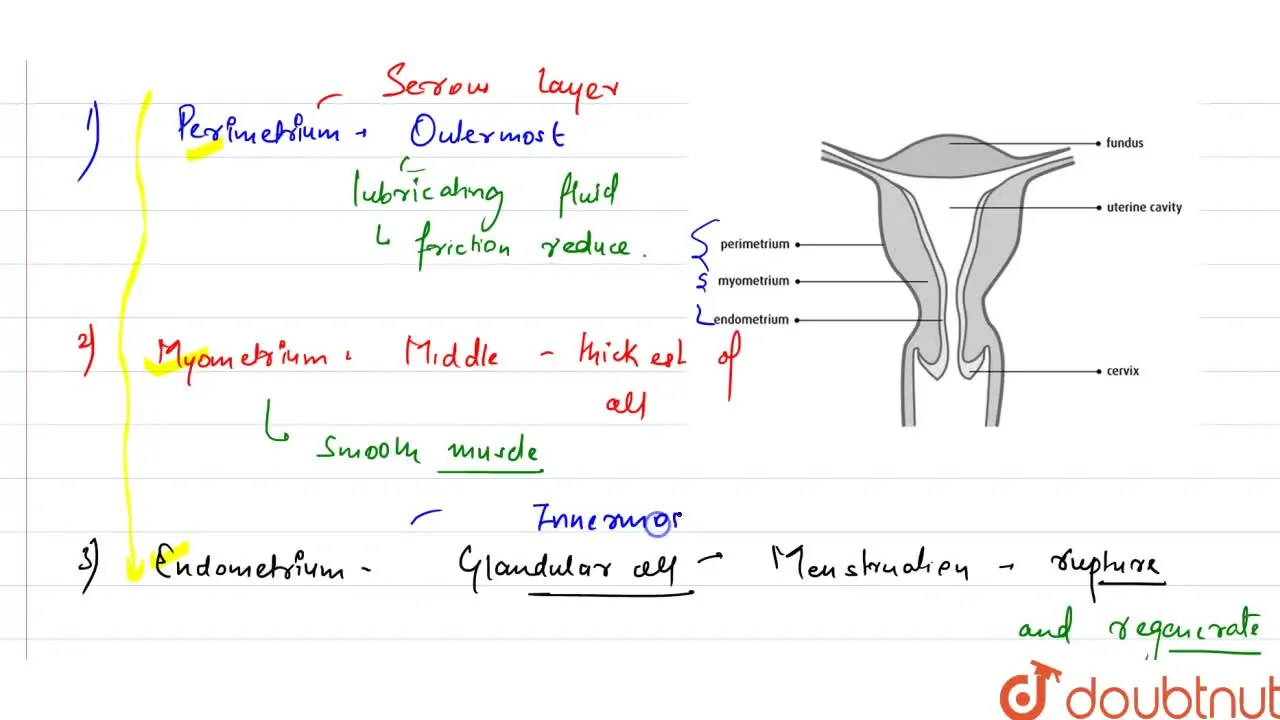 Serous Layer
1) Perimetrium → Outermost
lubricating fluid
↳ friction reduce.
2) Myometrium : Middle - thickest of
all
↳ Smooth muscle
Innermos
3) Endometrium - Glandular cell → Menstruation → rupture
and regenerate
fundus
uterine cavity
perimetrium
myometrium
endometrium
cervix
doubtnut